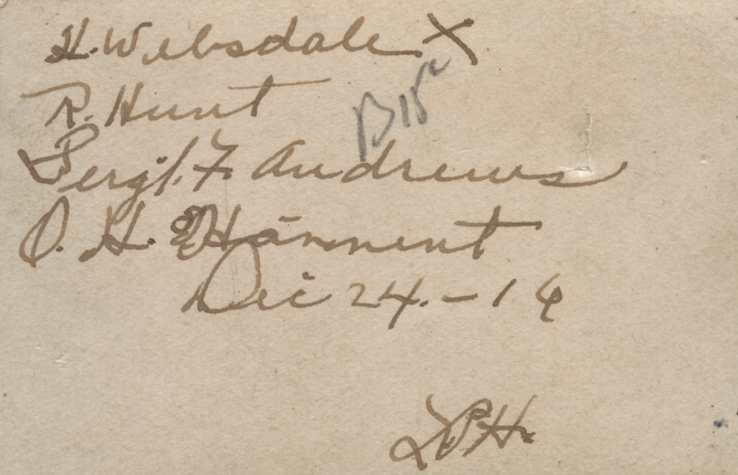 H. Websdale X
R. Hunt
Sergt. F. Andrews
O. H. Hamment
Dec 24. - 16